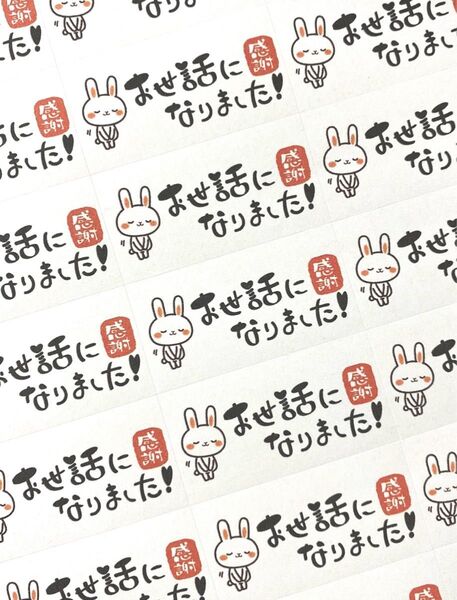 なりました!
お世話に
なりました
した!
お世話に
感謝
なりました!
感謝
ました!
お世話
なり
お世話に
感謝
なりました!
話に
ました!
お
お世話に
感謝
なりました!
世話に
感謝
なりました!
お世話に
感謝
なりました!
お世話に
感謝
なりました!
お世話に
感謝
なりました!
お世話に